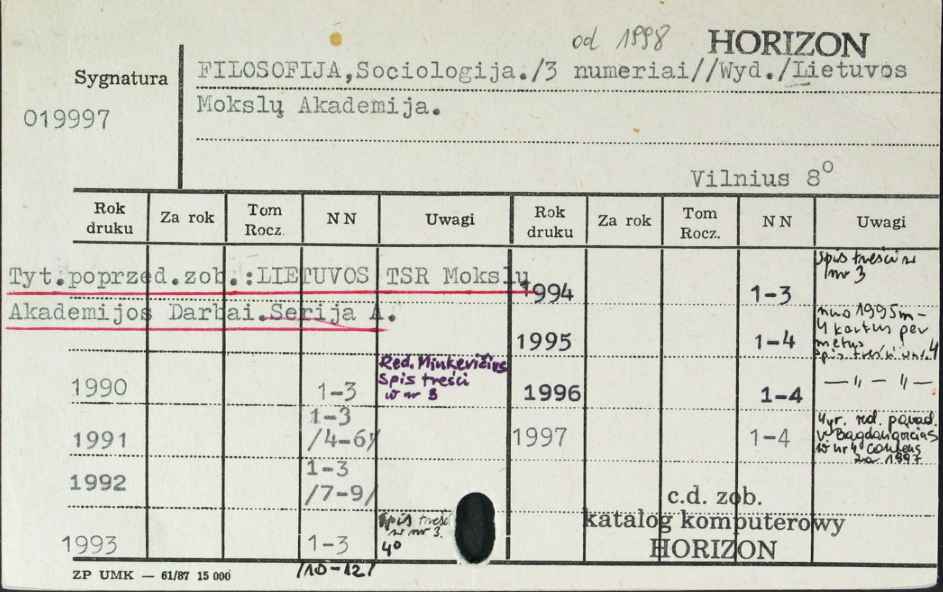 od 1998 HORIZON
Sygnatura
019997
FILOSOFIJA,Sociologija./3 numeriai//Wyd./Lietuvos
Mokslų Akademija.
Vilnius 8°
Rok druku Za rok Tom Rocz. NN Uwagi Rok druku Za rok Tom Rocz. NN Uwagi
Tyt.poprzed.zob.:LIETUVOS TSR Mokslų
Akademijos Darbai.Serija A.
1994 1-3 spis treści w nr 3
1995 1-4 nuo 1995 m - 4 kartus per metus spis treści w nr 4
1990 1-3 Red. Minkevičius spis treści w nr 3
1996 1-4 — 〃 — 〃 —
1991 1-3 /4-6/
1997 1-4 Vyr. red. pavad. w nr 4 za 1997
1992 1-3 /7-9/
1993 1-3 /10-12/ spis treści w nr 3. 4°
c.d. zob.
katalog komputerowy
HORIZON
ZP UMK — 61/87 15 000